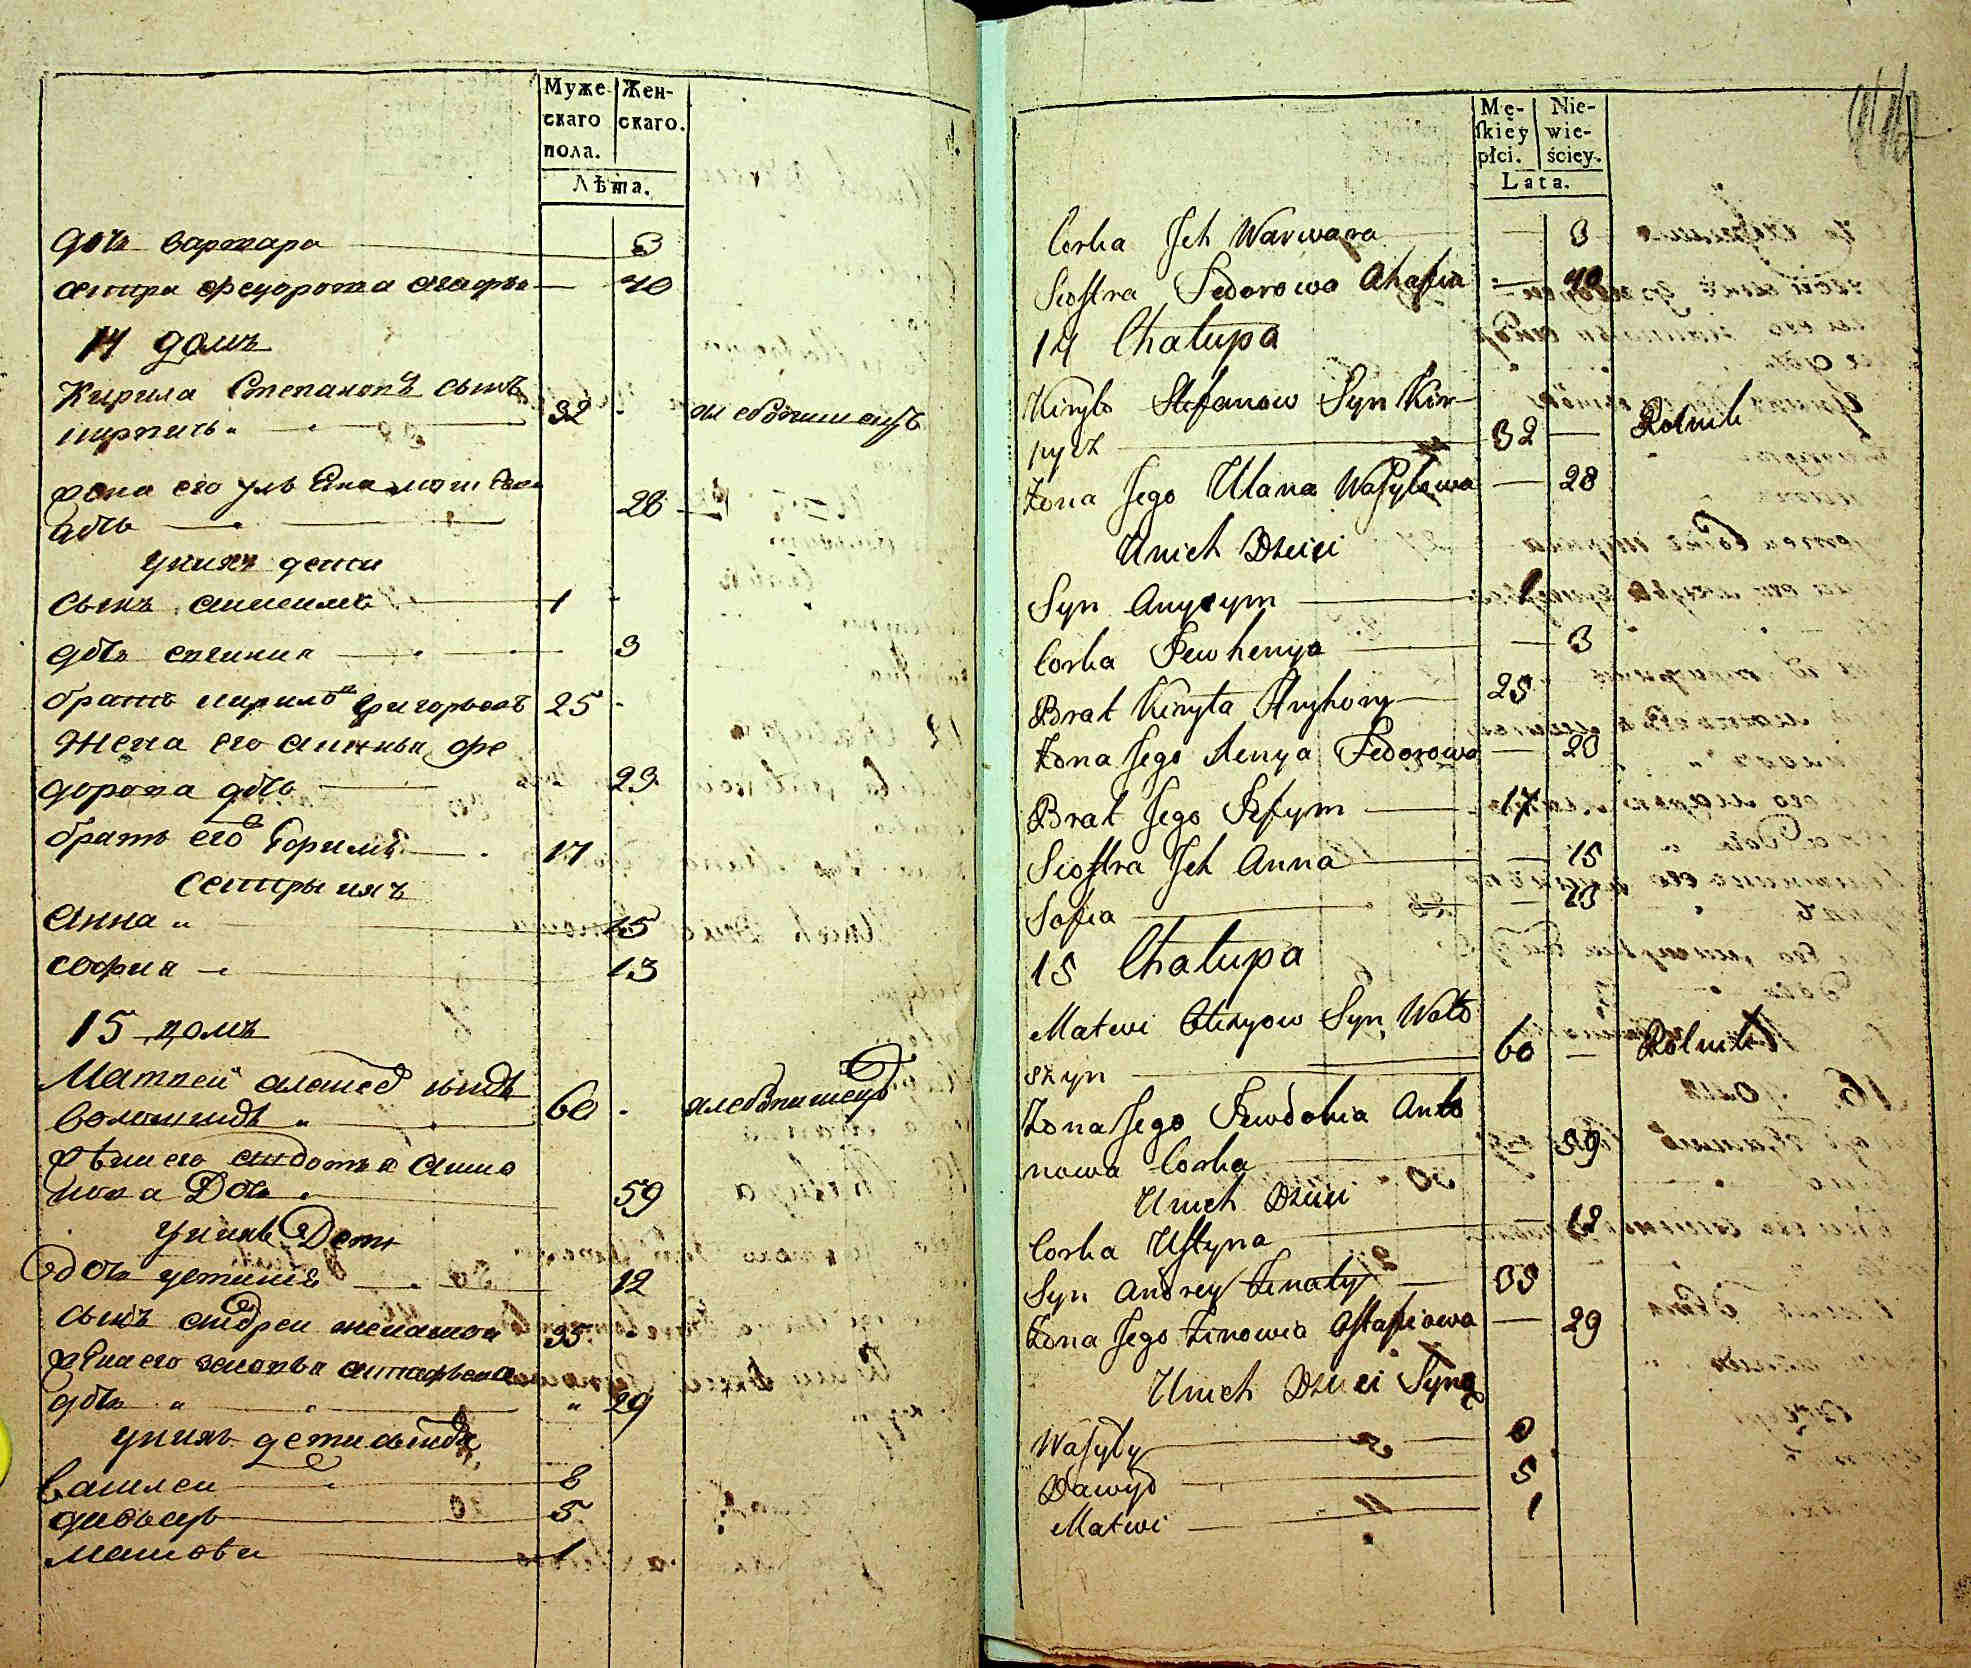 Муже-
скаго
пола.
Жен-
скаго.
Лѣта.
дочь варвара 3
сестра федорова агафья 40
14 домъ
Кирила Степановъ сынъ
кирпичь 32 - хлебопашецъ
28
у нихъ дети
сынъ анисимъ 1
дочь евгения 3
братъ кирилы григорьевъ 25
жена его аксинья фе
дорова дочь 23
братъ его Ефимъ 17
сестры ихъ
анна 15
софия 13
15 домъ
Матвей алексеевъ сынъ
волошинъ 60 - хлебопашецъ
жена его евдокия анто
нова дочь 59
у нихъ дети
дочь устиния 12
сынъ андреи женатои 35
жена его зиновья астафьева
дочь 29
у нихъ дети сыновя
василеи 8
давыдъ 5
матвеи 1
Mę-
skiey
płci.
Nie-
wie-
ściey.
Lata.
Corka Jch Warwara — 3
Siostra Fedorowa Ahafia — 40
14 Chałupa
Kiryło Stefanow Syn Kir-
pycz 32 — Rolnik
Żona Jego Ulana Wasylowa — 28
U nich Dzieci
Syn Anysym 1
Corka Jewhenya — 3
Brat Kiryła Hryhory 25
Żona Jego Xenya Fedorowa — 23
Brat Jego Jefym 17
Siostra Jch Anna — 15
Sofia — 13
15 Chałupa
Matwi Olexyow Syn Woło
szyn 60 — Rolnik
Żona Jego Jewdokia Anto
nowa Corka 59
U nich Dzieci
Corka Ustyna 12
Syn Andrey Żonaty 35
Żona Jego Zinowia Astafiowa — 29
U nich Dzieci Syny
Wasyly 8
Dawyd 5
Matwi 1